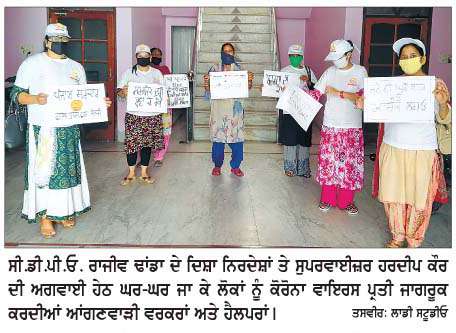 ਸੀ.ਡੀ.ਪੀ.ਓ. ਰਾਜੀਵ ਢਾਂਡਾ ਦੇ ਦਿਸ਼ਾ ਨਿਰਦੇਸ਼ਾਂ ਤੇ ਸੁਪਰਵਾਈਜ਼ਰ ਹਰਦੀਪ ਕੌਰ
ਦੀ ਅਗਵਾਈ ਹੇਠ ਘਰ-ਘਰ ਜਾ ਕੇ ਲੋਕਾਂ ਨੂੰ ਕੋਰੋਨਾ ਵਾਇਰਸ ਪ੍ਰਤੀ ਜਾਗਰੂਕ
ਕਰਦੀਆਂ ਆਂਗਣਵਾੜੀ ਵਰਕਰਾਂ ਅਤੇ ਹੈਲਪਰਾਂ।
ਤਸਵੀਰ: ਲਾਡੀ ਸਟੂਡੀਓ